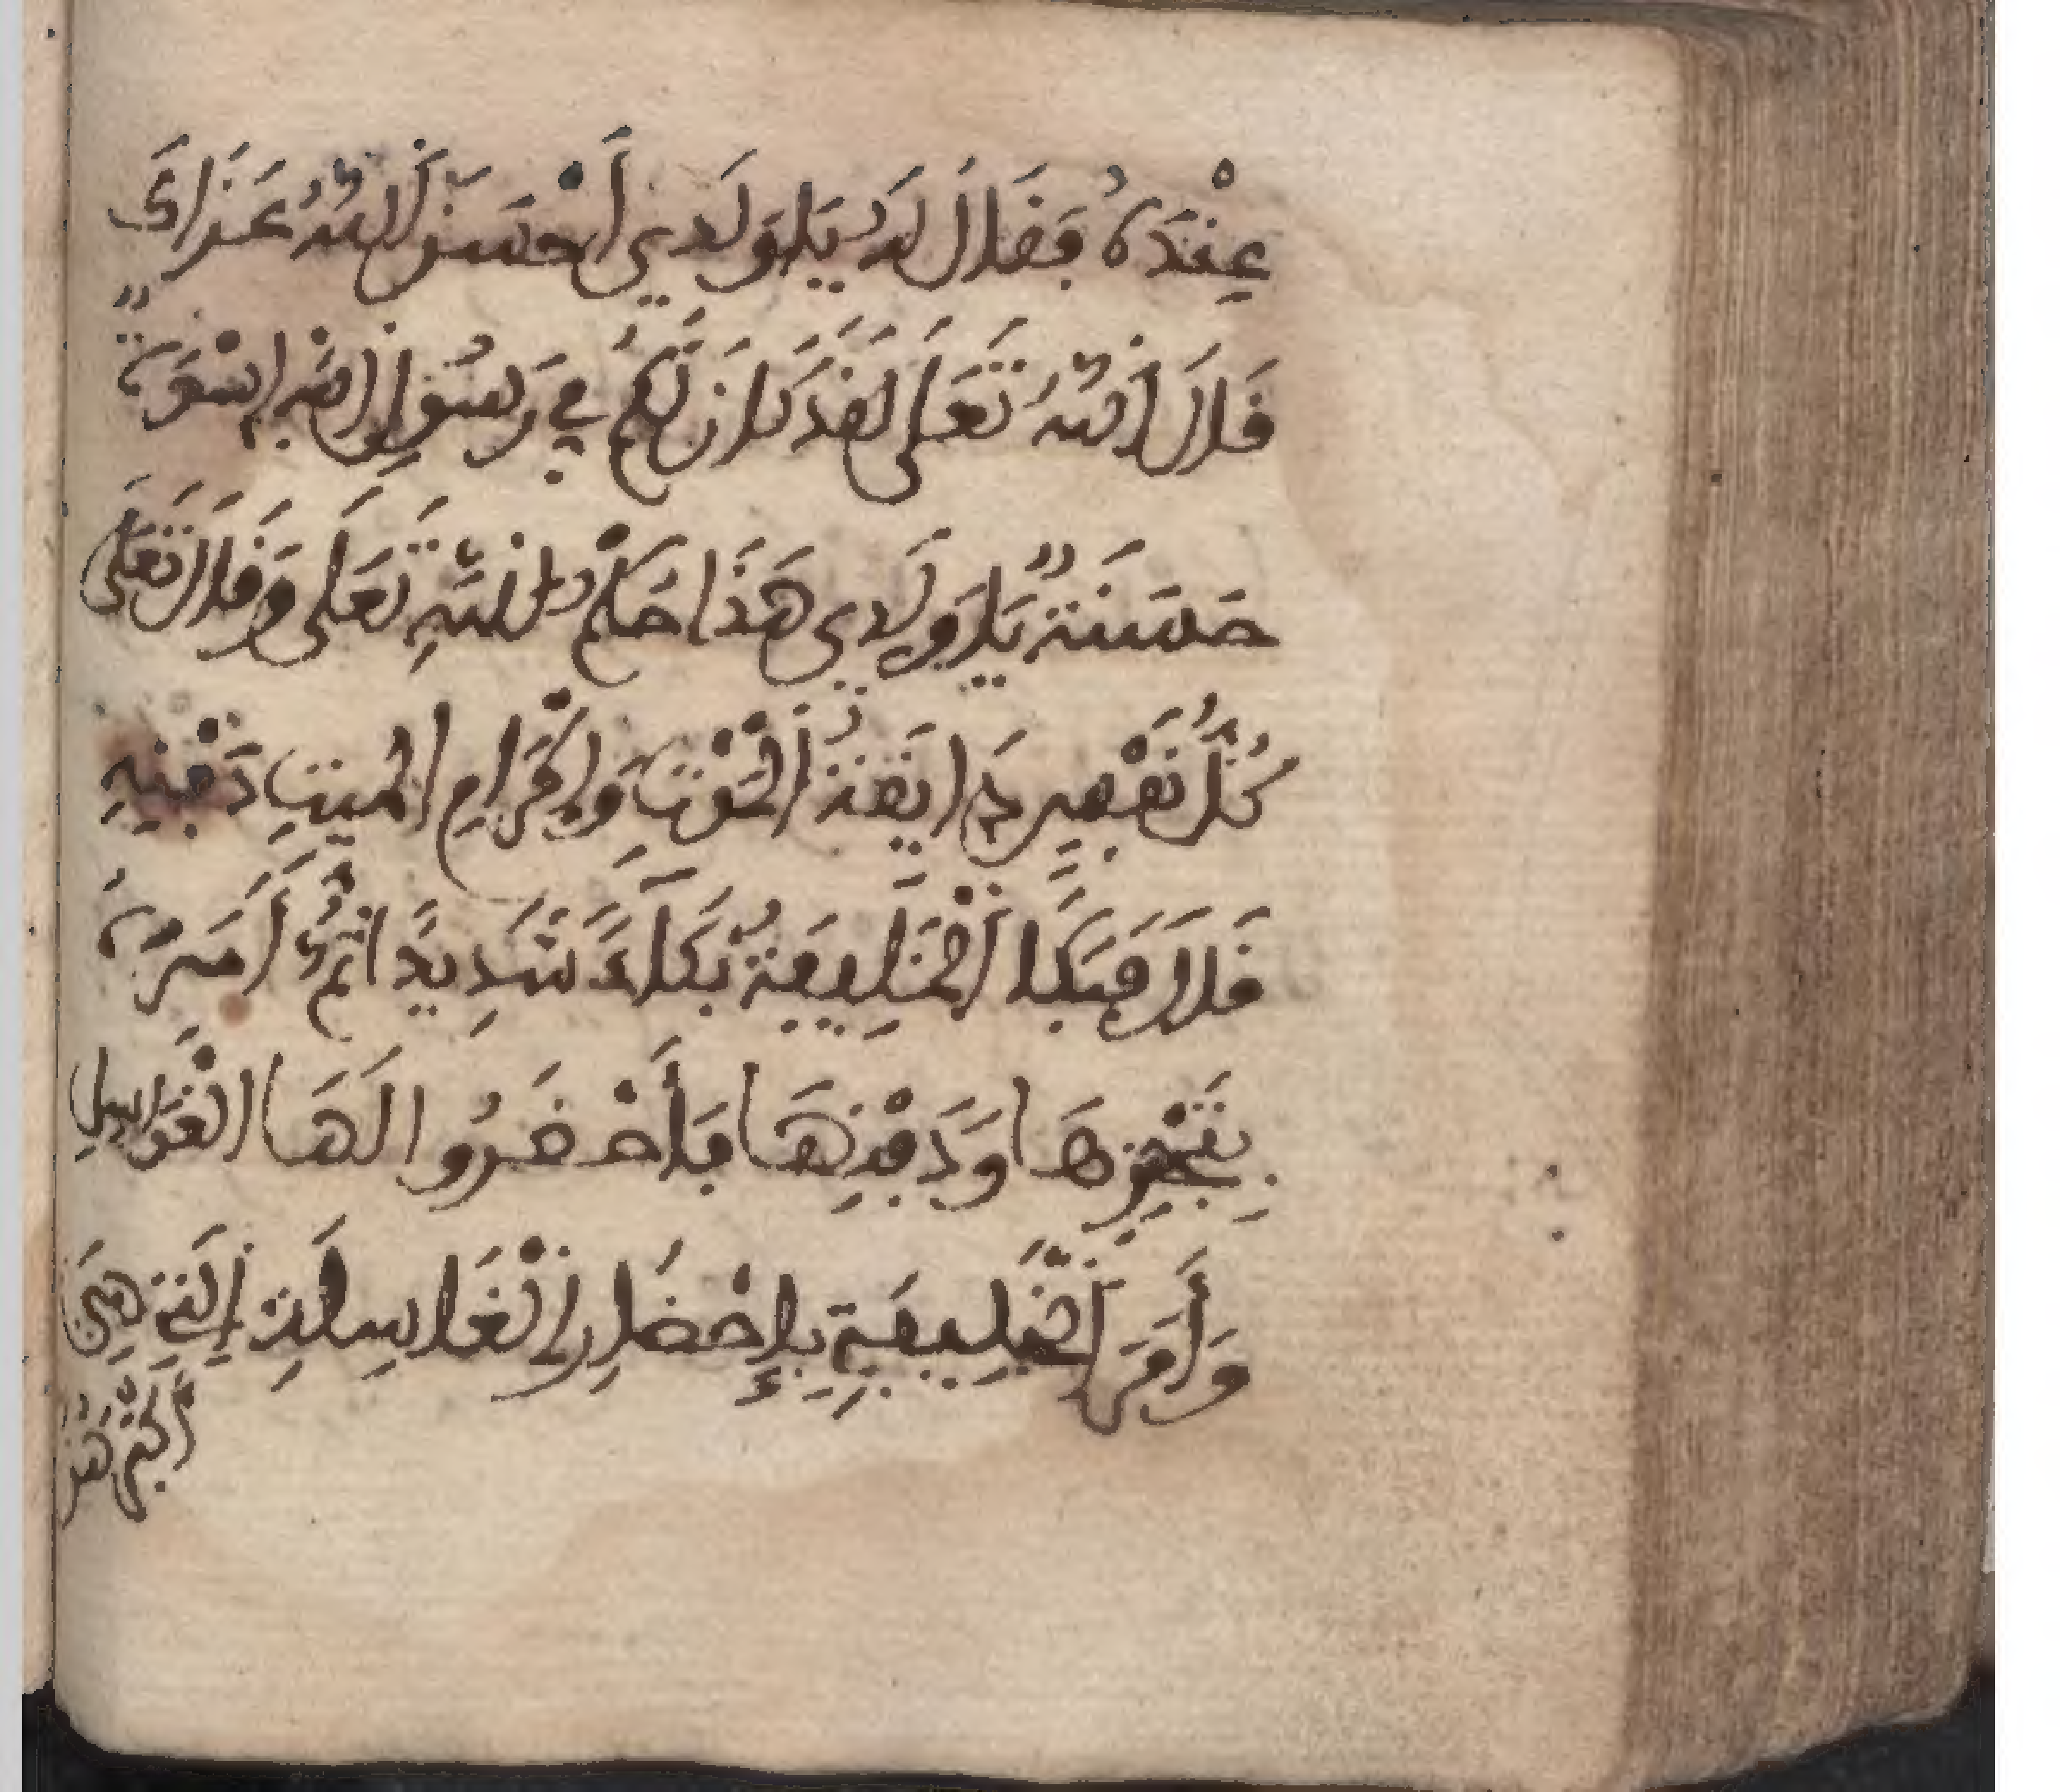 عِنْدَهُ فَقَالَ لَهُ يَا وَلَدِي أَحْسَنَ اللَّهُ عَزَاكَ
قَالَ اللَّهُ تَعَلَى لَقَدْ كَانَ لَكُمْ فِي رَسُولِ اللَّهِ إِسْوَةٌ
حَسَنَةٌ يَا وَلَدِي هَذَا حُكْمُ اللَّهِ تَعَلَى وَقَالَ تَعَلَى
كُلُّ نَفْسٍ ذَايِقَةُ الْمَوْتِ وَإِكْرَامِ الْمَيِّتِ دَفْنِهِ
قَالَ فَبَكَا الْخَلِيفَةُ بُكَاءً شَدِيدًا ثُمَّ أَمَرَ
بِتَجْهِيزِهَا وَدَفْنِهَا فَأَحْضَرُوا لَهَا الْغَوَاسِلِ
وَأَمَرَ الْخَلِيفَةِ بِإِحْضَارِ الْغَاسِلَةِ الَّتِي هِيَ